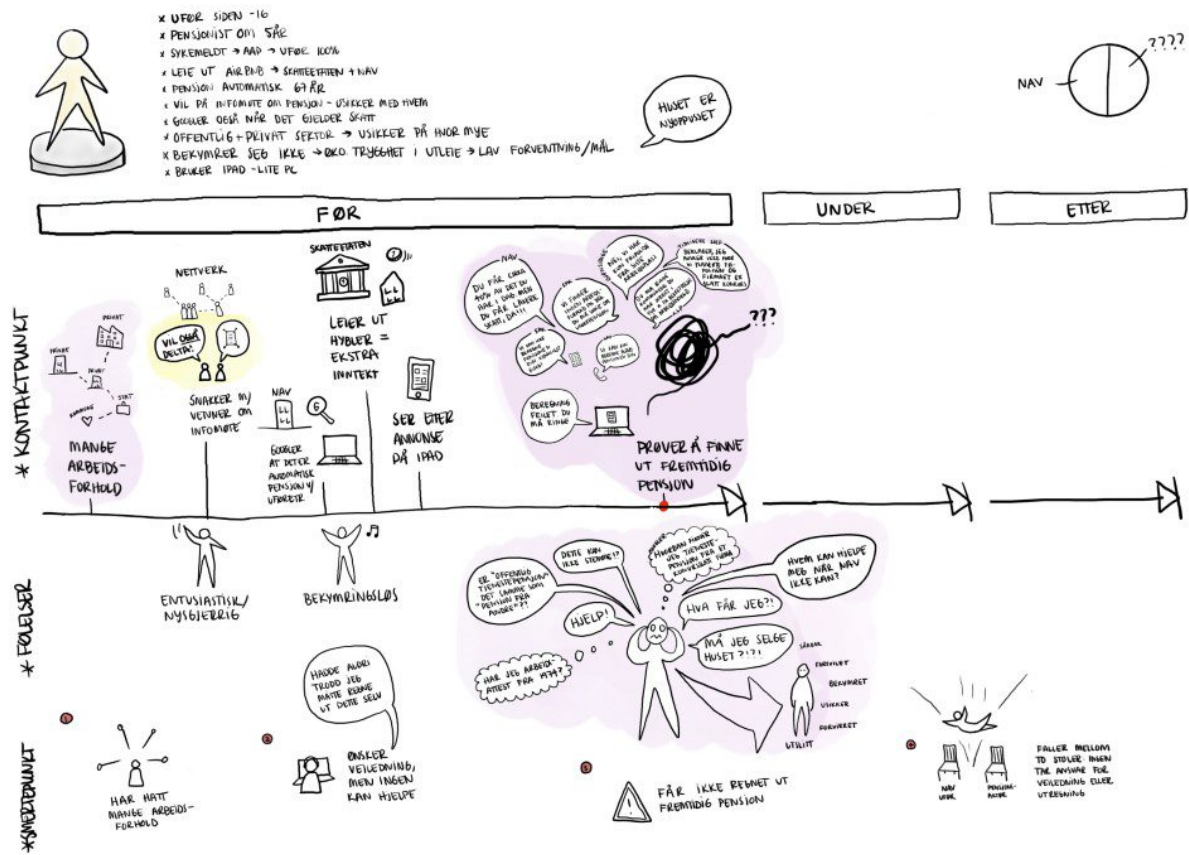 * UFØR SIDEN -16
* PENSJONIST OM 5ÅR
* SYKEMELDT → AAP → UFØR 100%
* LEIE UT AIRBNB → SKATTEETATEN + NAV
* PENSJON AUTOMATISK 67 ÅR
* VIL PÅ INFOMØTE OM PENSJON - USIKKER MED HVEM
* GOOGLER OGSÅ NÅR DET GJELDER SKATT
* OFFENTLIG + PRIVAT SEKTOR → USIKKER PÅ HVOR MYE
* BEKYMRER SEG IKKE → ØKO. TRYGGHET I UTLEIE → LAV FORVENTNING/MÅL
* BRUKER IPAD - LITE PC
HUSET ER
NYOPPUSSET
NAV
????
FØR
UNDER
ETTER
* KONTAKTPUNKT
PRIVAT
PRIVAT
PRIVAT
KOMMUNE
STAT
MANGE
ARBEIDS-
FORHOLD
NETTVERK
VIL OGSÅ
DELTA!
SNAKKER M/
VENNER OM
INFOMØTE
NAV
GOOGLER
AT DET ER
AUTOMATISK
PENSJON V/
UFØRETR
SKATTEETATEN
LEIER UT
HYBLER =
EKSTRA
INNTEKT
SER ETTER
ANNONSE
PÅ IPAD
NAV
DU FÅR CIRKA
40% AV DET DU
HAR I DAG MEN
DU FÅR LAVERE
SKATT, DA!!!
NEI, VI HAR
KUN
FRA SISTE
BEKLAGER, JEG
FIRMAET ER
SLÅTT KONKURS
BEREGNING
FEILET DU
MÅ RINGE
???
PRØVER Å FINNE
UT FREMTIDIG
PENSJON
* FØLELSER
ENTUSIASTISK/
NYSGJERRIG
BEKYMRINGSLØS
ER "OFFENTLIG
TJENESTEPENSJON"
DET SAMME SOM
"PENSJON FRA
ANDRE"?!
DETTE KAN
IKKE STEMME!?
HVORDAN FINNER
JEG TJENESTE-
PENSJON FRA ET
KONKURSLAGT FIRMA
HVEM KAN HJELPE
MEG NÅR NAV
IKKE KAN?
HJELP!
HVA FÅR JEG?!
MÅ JEG SELGE
HUSET?!?!
HAR JEG ARBEIDS-
ATTEST FRA 1974?
SÅRBAR
FORTVILET
BEKYMRET
USIKKER
FORVIRRET
UTSLITT
* SMERTEPUNKT
1
HAR HATT
MANGE ARBEIDS-
FORHOLD
2
HADDE ALDRI
TRODD JEG
MÅTTE REGNE
UT DETTE SELV
ØNSKER
VEILEDNING,
MEN INGEN
KAN HJELPE
3
FÅR IKKE REGNET UT
FREMTIDIG PENSJON
NAV
UFØR
PENSJONS-
AKTØR
FALLER MELLOM
TO STOLER. INGEN
TAR ANSVAR FOR
VEILEDNING ELLER
UTREGNING